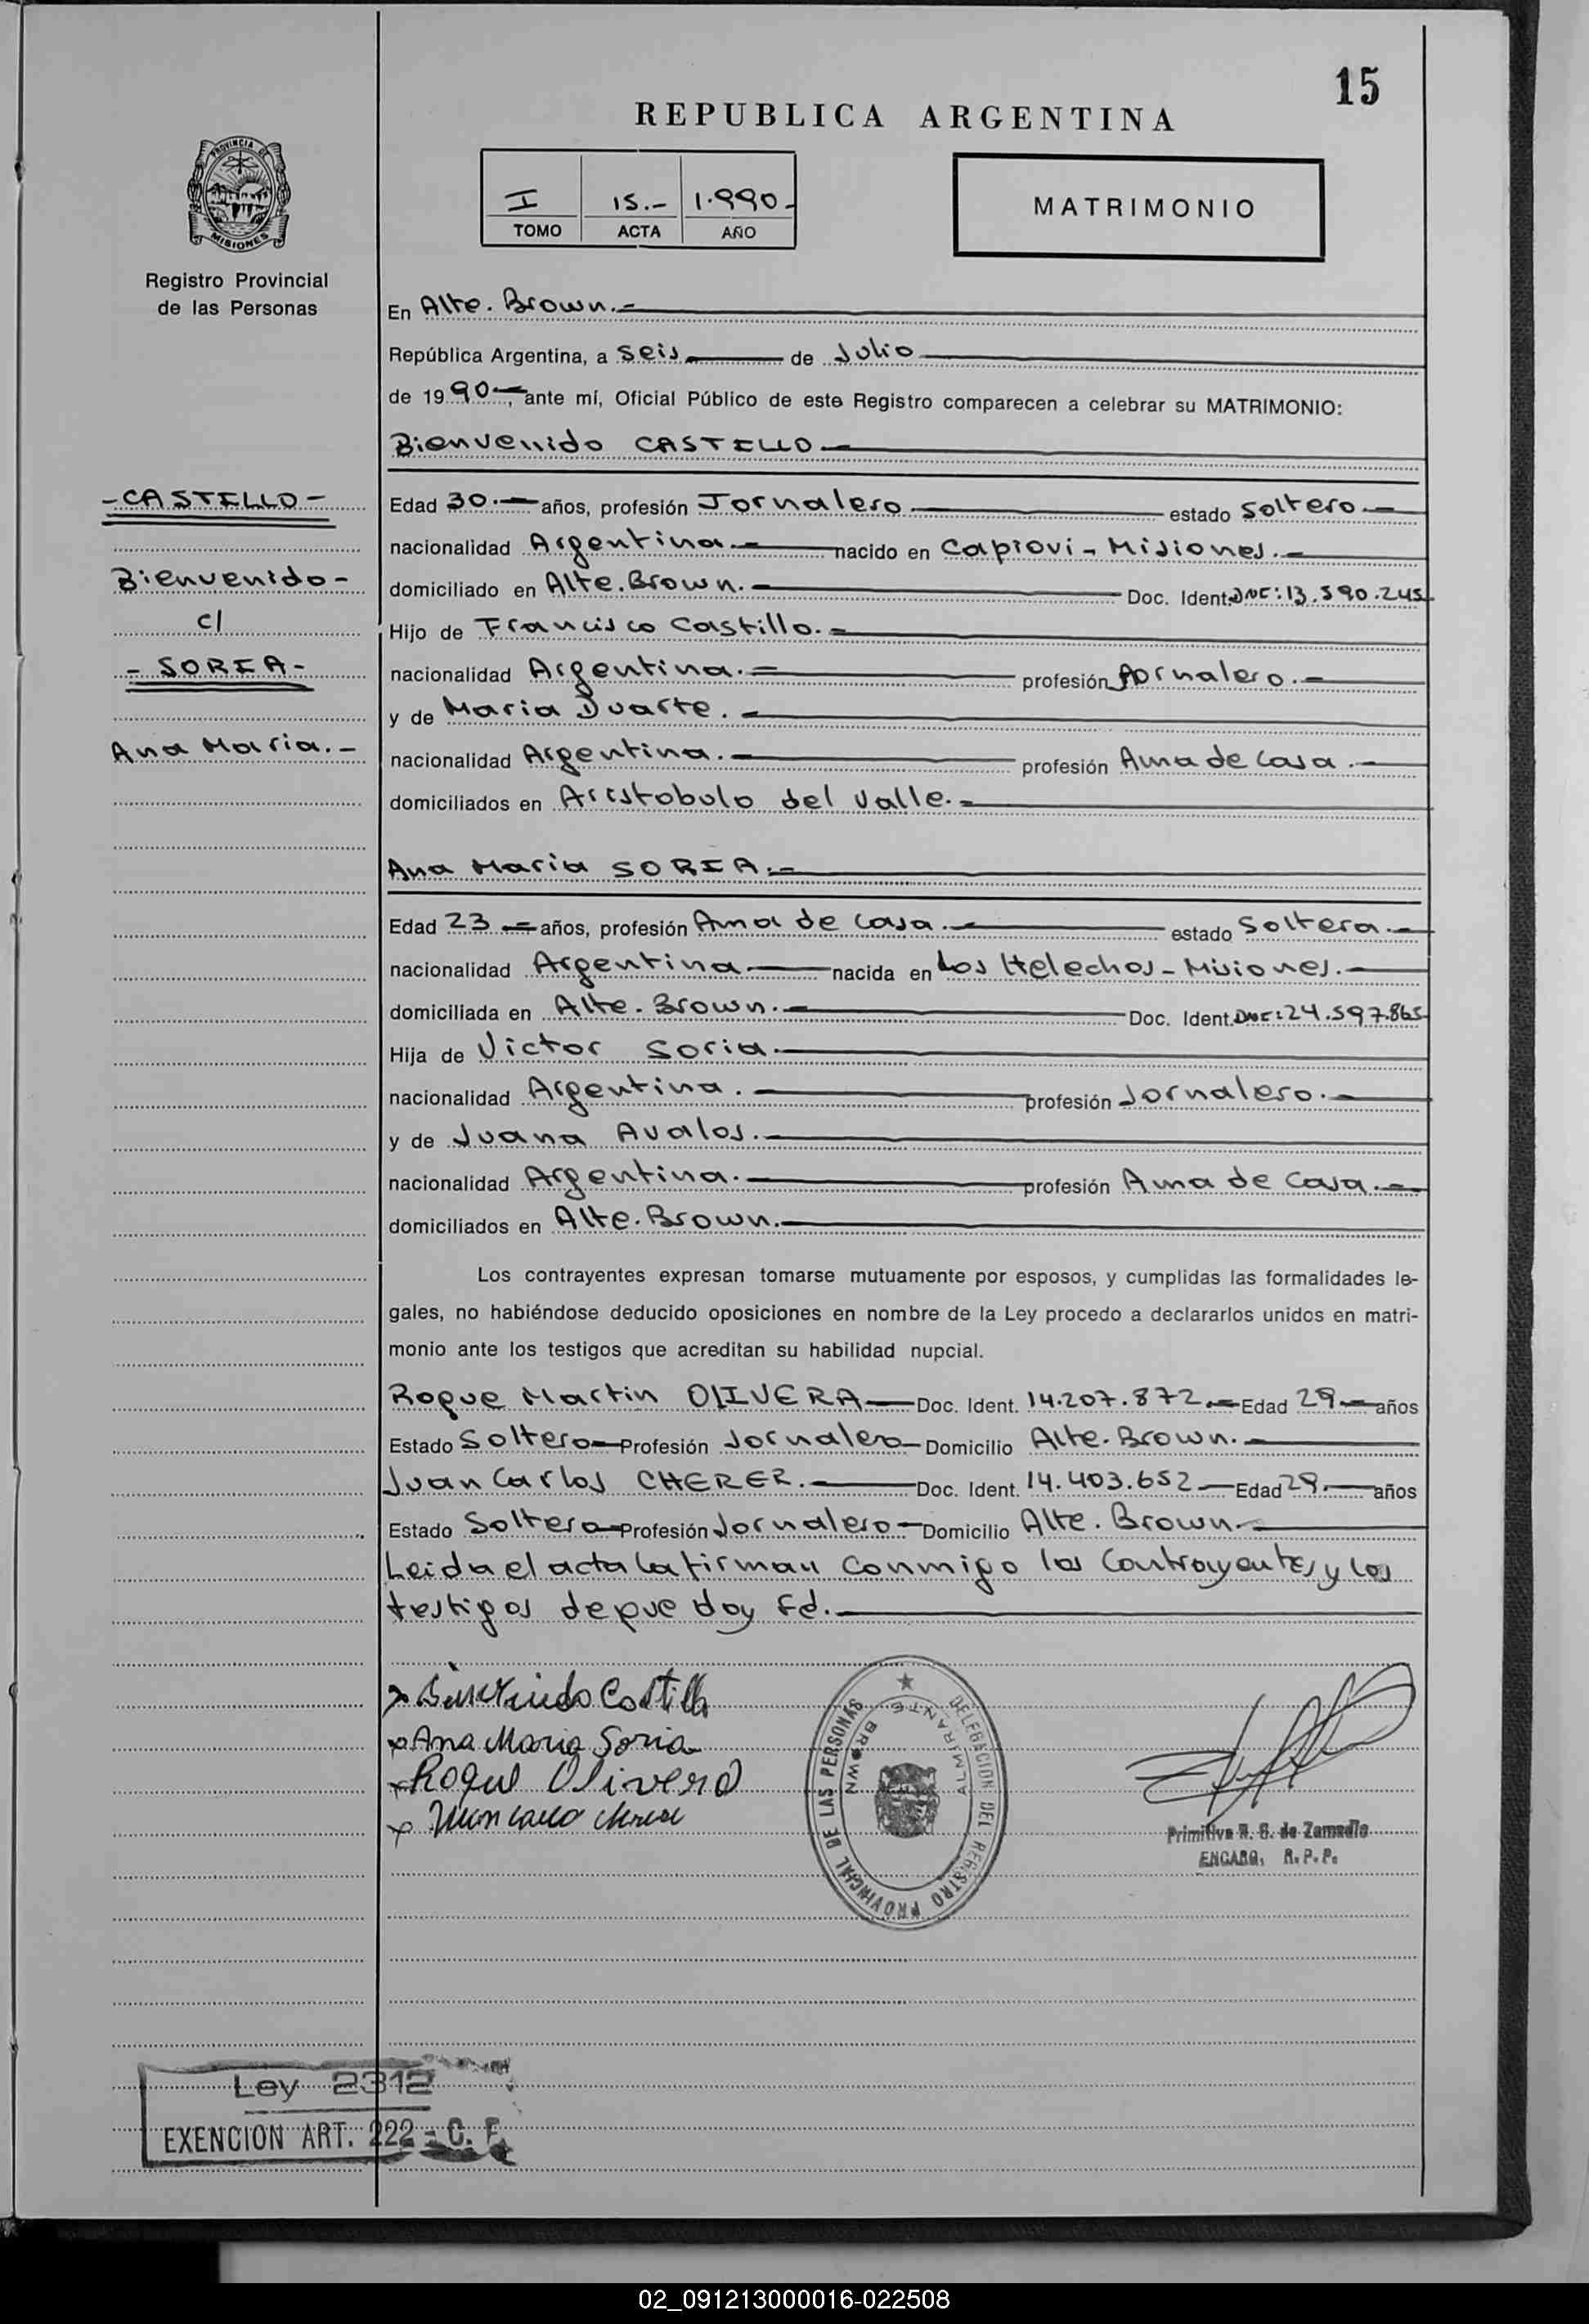 15
REPUBLICA ARGENTINA
PROVINCIA DE
MISIONES
Registro Provincial
de las Personas
I 15.- 1.990-
TOMO ACTA AÑO
MATRIMONIO
En Alte. Brown.-
República Argentina, a seis de Julio
de 1990-, ante mí, Oficial Público de este Registro comparecen a celebrar su MATRIMONIO:
Bienvenido CASTILLO-
-CASTILLO-
Bienvenido-
c/
-SORIA-
Ana Maria.-
Edad 30.- años, profesión Jornalero estado Soltero.-
nacionalidad Argentina.- nacido en Capiovi-Misiones.-
domiciliado en Alte. Brown.- Doc. Ident. DNI: 13.590.245
Hijo de Francisco Castillo.-
nacionalidad Argentina.- profesión Jornalero.-
y de Maria Duarte.-
nacionalidad Argentina.- profesión Ama de Casa.-
domiciliados en Aristobulo del Valle.-
Ana Maria SORIA.-
Edad 23- años, profesión Ama de Casa.- estado Soltera.-
nacionalidad Argentina- nacida en Los Helechos-Misiones.-
domiciliada en Alte. Brown.- Doc. Ident. DNI: 24.597.865
Hija de Victor Soria-
nacionalidad Argentina.- profesión Jornalero.-
y de Juana Avalos.-
nacionalidad Argentina.- profesión Ama de Casa.-
domiciliados en Alte. Brown.-
Los contrayentes expresan tomarse mutuamente por esposos, y cumplidas las formalidades le-
gales, no habiéndose deducido oposiciones en nombre de la Ley procedo a declararlos unidos en matri-
monio ante los testigos que acreditan su habilidad nupcial.
Roque Martin OLIVERA- Doc. Ident. 14.207.872.- Edad 29.- años
Estado Soltero- Profesión Jornalero- Domicilio Alte. Brown.-
Juan Carlos CHERER.- Doc. Ident. 14.403.652- Edad 29.- años
Estado Soltero- Profesión Jornalero- Domicilio Alte. Brown-
Leida el acta la firman conmigo los Contrayentes y los
testigos de que doy Fé.-
x Bienvenido Castillo
x Ana Maria Soria
x Roque Olivera
x Juan Carlos Cherer
DELEGACION DEL REGISTRO PROVINCIAL DE LAS PERSONAS
ALMIRANTE BROWN
Primitiva R. G. de Zamudio
ENCARG. R.P.P.
Ley 2312
EXENCION ART. 222 - C. F.
02_091213000016-022508